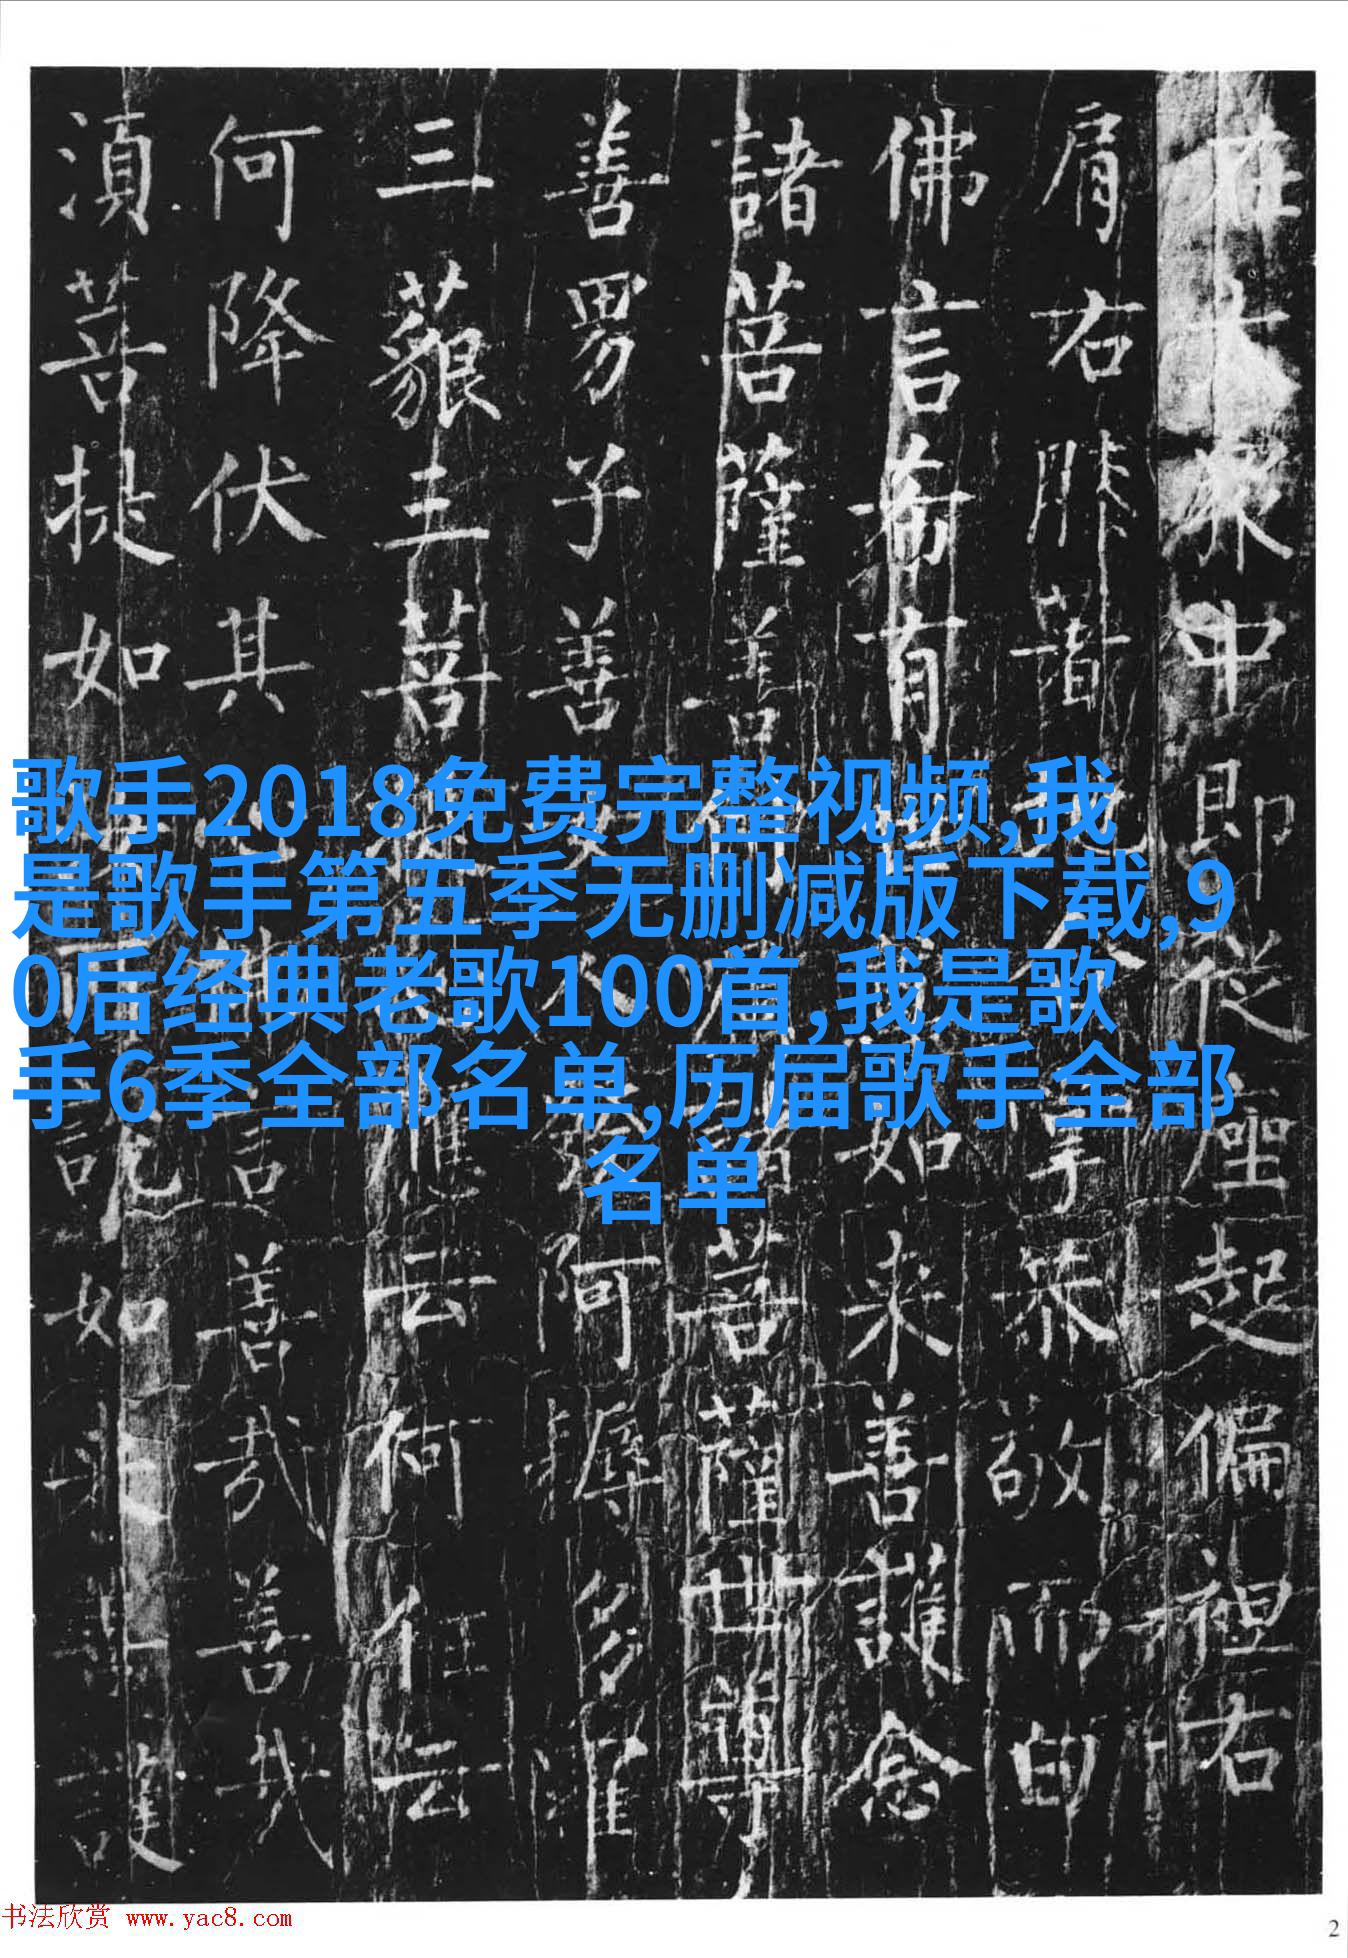 在大眾中即從座起偏袒右
肩右膝著掌恭敬而白
佛言希有如来善護念
諸菩薩善諸菩薩世尊
善男子善阿耨多羅
三藐三菩應云何住云
何降伏其言善哉善哉
湏菩提如說如来善護
歌手2018免费完整视频,我
是歌手第五季无删减版下载,9
0后经典老歌100首,我是歌
手6季全部名单,历届歌手全部
名单
书法欣赏 www.yac8.com
2